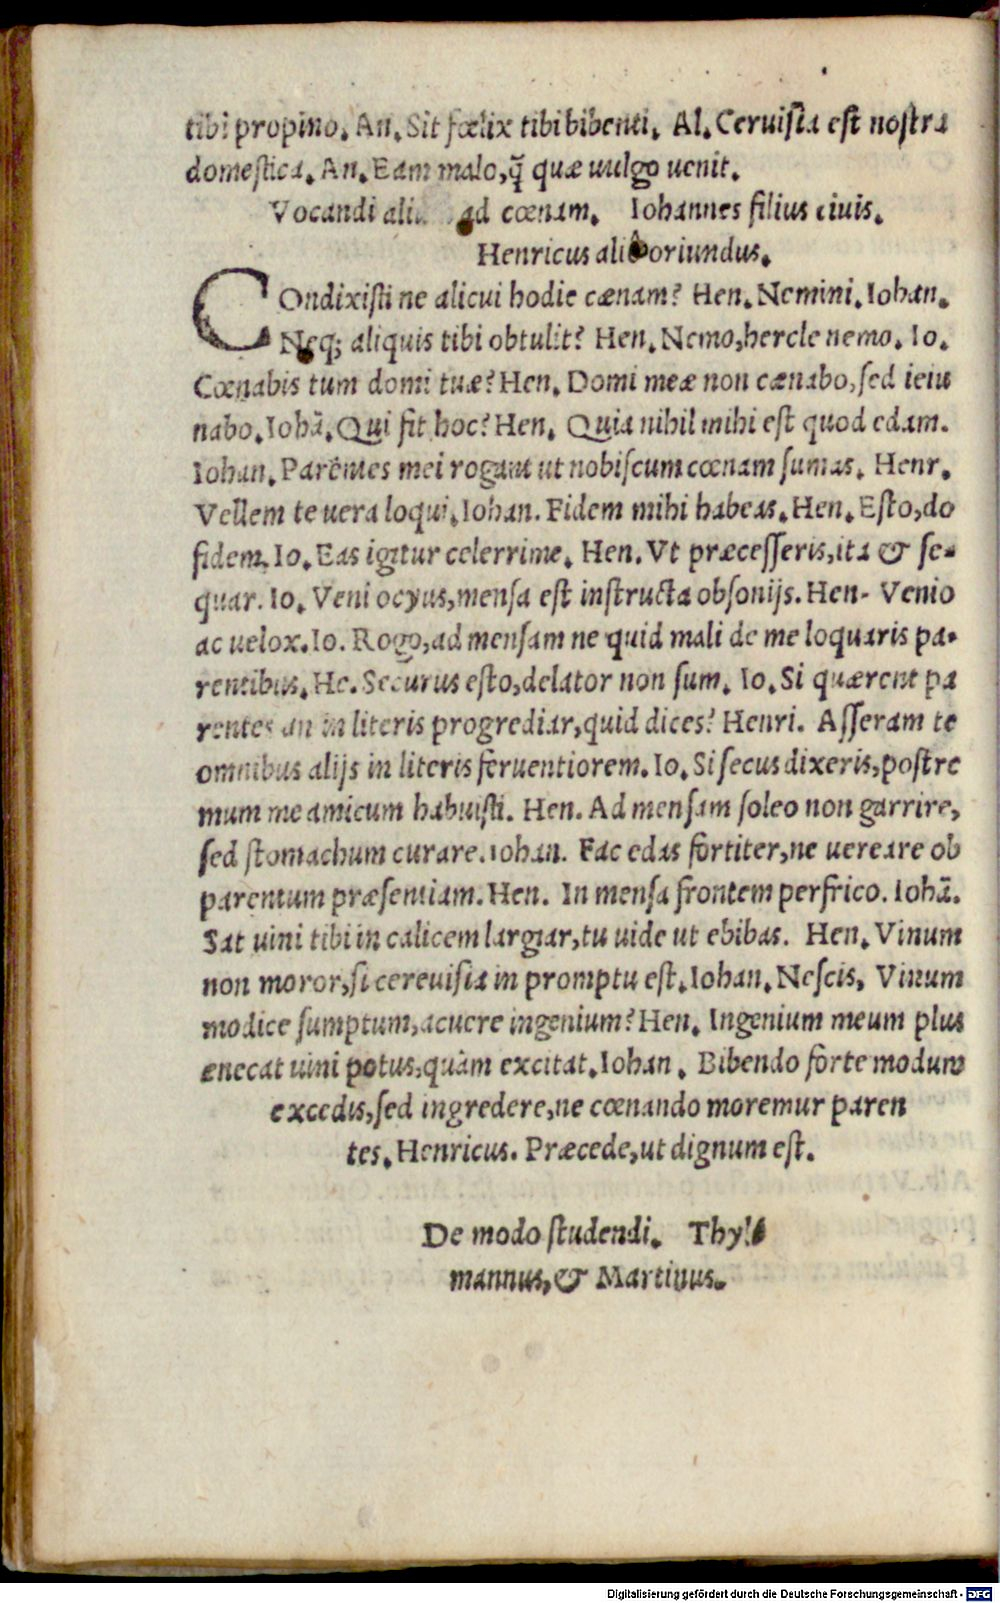 tibi propino. An. Sit fœlix tibi bibenti. Al. Ceruisia est nostra
domestica. An. Eam malo, q̃ quæ uulgo uenit.
Vocandi ad cœnam. Iohannes filius ciuis.
Henricus oriundus.
COndixisti ne alicui hodie cænam? Hen. Nemini. Iohan.
Neq; aliquis tibi obtulit? Hen. Nemo, hercle nemo. Io.
Cœnabis tum domi tuæ? Hen. Domi meæ non cænabo, sed ieiu
nabo. Iohã. Qui fit hoc? Hen. Quia nihil mihi est quod edam.
Iohan. Parentes mei rogant ut nobiscum cœnam sumas. Henr.
Vellem te uera loqui. Iohan. Fidem mihi habeas. Hen. Esto, do
fidem. Io. Eas igitur celerrime. Hen. Vt præcesseris, ita & se-
quar. Io. Veni ocyus, mensa est instructa obsonijs. Hen- Venio
ac uelox. Io. Rogo, ad mensam ne quid mali de me loquaris pa-
rentibus. He. Securus esto, delator non sum. Io. Si quærent pa
rentes an in literis progrediar, quid dices? Henri. Asseram te
omnibus alijs in literis feruentiorem. Io. Si secus dixeris, postre
mum me amicum habuisti. Hen. Ad mensam soleo non garrire,
sed stomachum curare. iohan. Fac edas fortiter, ne uereare ob
parentum præsentiam. Hen. In mensa frontem perfrico. Iohã.
Sat uini tibi in calicem largiar, tu uide ut ebibas. Hen. Vinum
non moror, si cereuisia in promptu est. Iohan. Nescis, Vinum
modice sumptum, acuere ingenium? Hen. Ingenium meum plus
enecat uini potus, quàm excitat. Iohan. Bibendo forte modum
excedis, sed ingredere, ne cœnando moremur paren
tes. Henricus. Præcede, ut dignum est.
De modo studendi. Thyl
mannus, & Martinus.
Digitalisierung gefördert durch die Deutsche Forschungsgemeinschaft - DFG